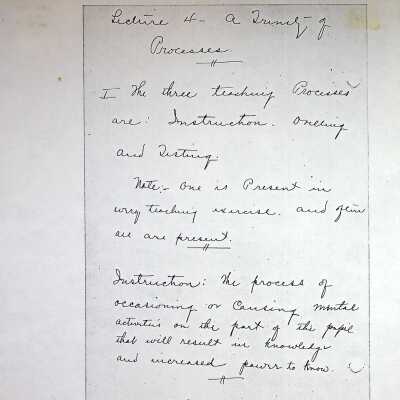 Lecture 4 - A Trinity of
Processes
I The three teaching Processes
are: Instruction. Drilling
and Testing.
Note:- One is Present in
every teaching exercise. and often
all are present.
Instruction: The process of
occasioning or causing mental
activities on the part of the pupil
that will result in knowledge
and increased power to know.